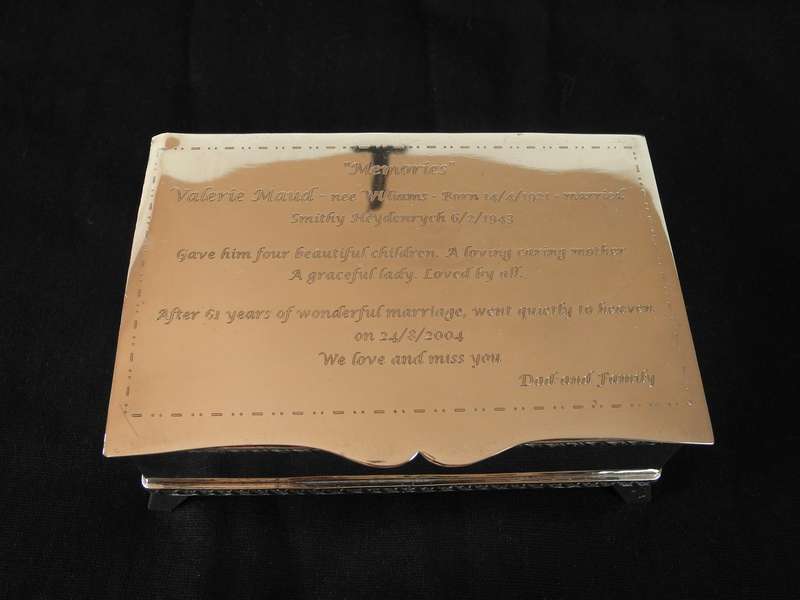 "Memories"
Valerie Maud - nee Wlliams - Born 14/4/1921 - married
Smithy Heydenrych 6/2/1943
Gave him four beautiful children. A loving caring mother
A graceful lady. Loved by all.
After 61 years of wonderful marriage, went quietly to heaven
on 24/8/2004
We love and miss you
Dad and Family